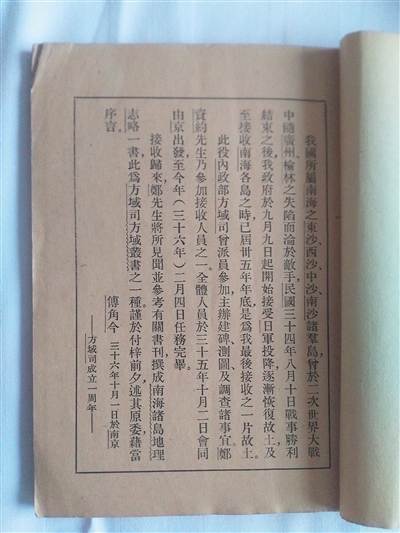 我國所屬南海之東沙、西沙、中沙、南沙諸羣島曾於二次世界大戰
中隨廣州、榆林之失陷而淪於敵手，民國三十四年八月十日戰事勝利
結束之後，我政府於九月九日起開始接受日軍投降，逐漸恢復故土，及
至接收南海各島之時，已屆卅五年年底，是爲我最後接收之一片故土。
此役內政部方域司曾派員參加，主辦建碑、測圖、及調查諸事宜，鄭
資約先生乃參加接收人員之一，全體人員於三十五年十月二日會同
由京出發，至今年（三十六年）二月四日任務完畢。
接收歸來，鄭先生將所見聞並參考有關書刊，撰成南海諸島地理
志略一書，此爲方域司方域叢書之一種，謹於付梓前夕，述其原委，藉當
序言。
傅角今 三十六年十月一日於南京
——方域司成立一周年——